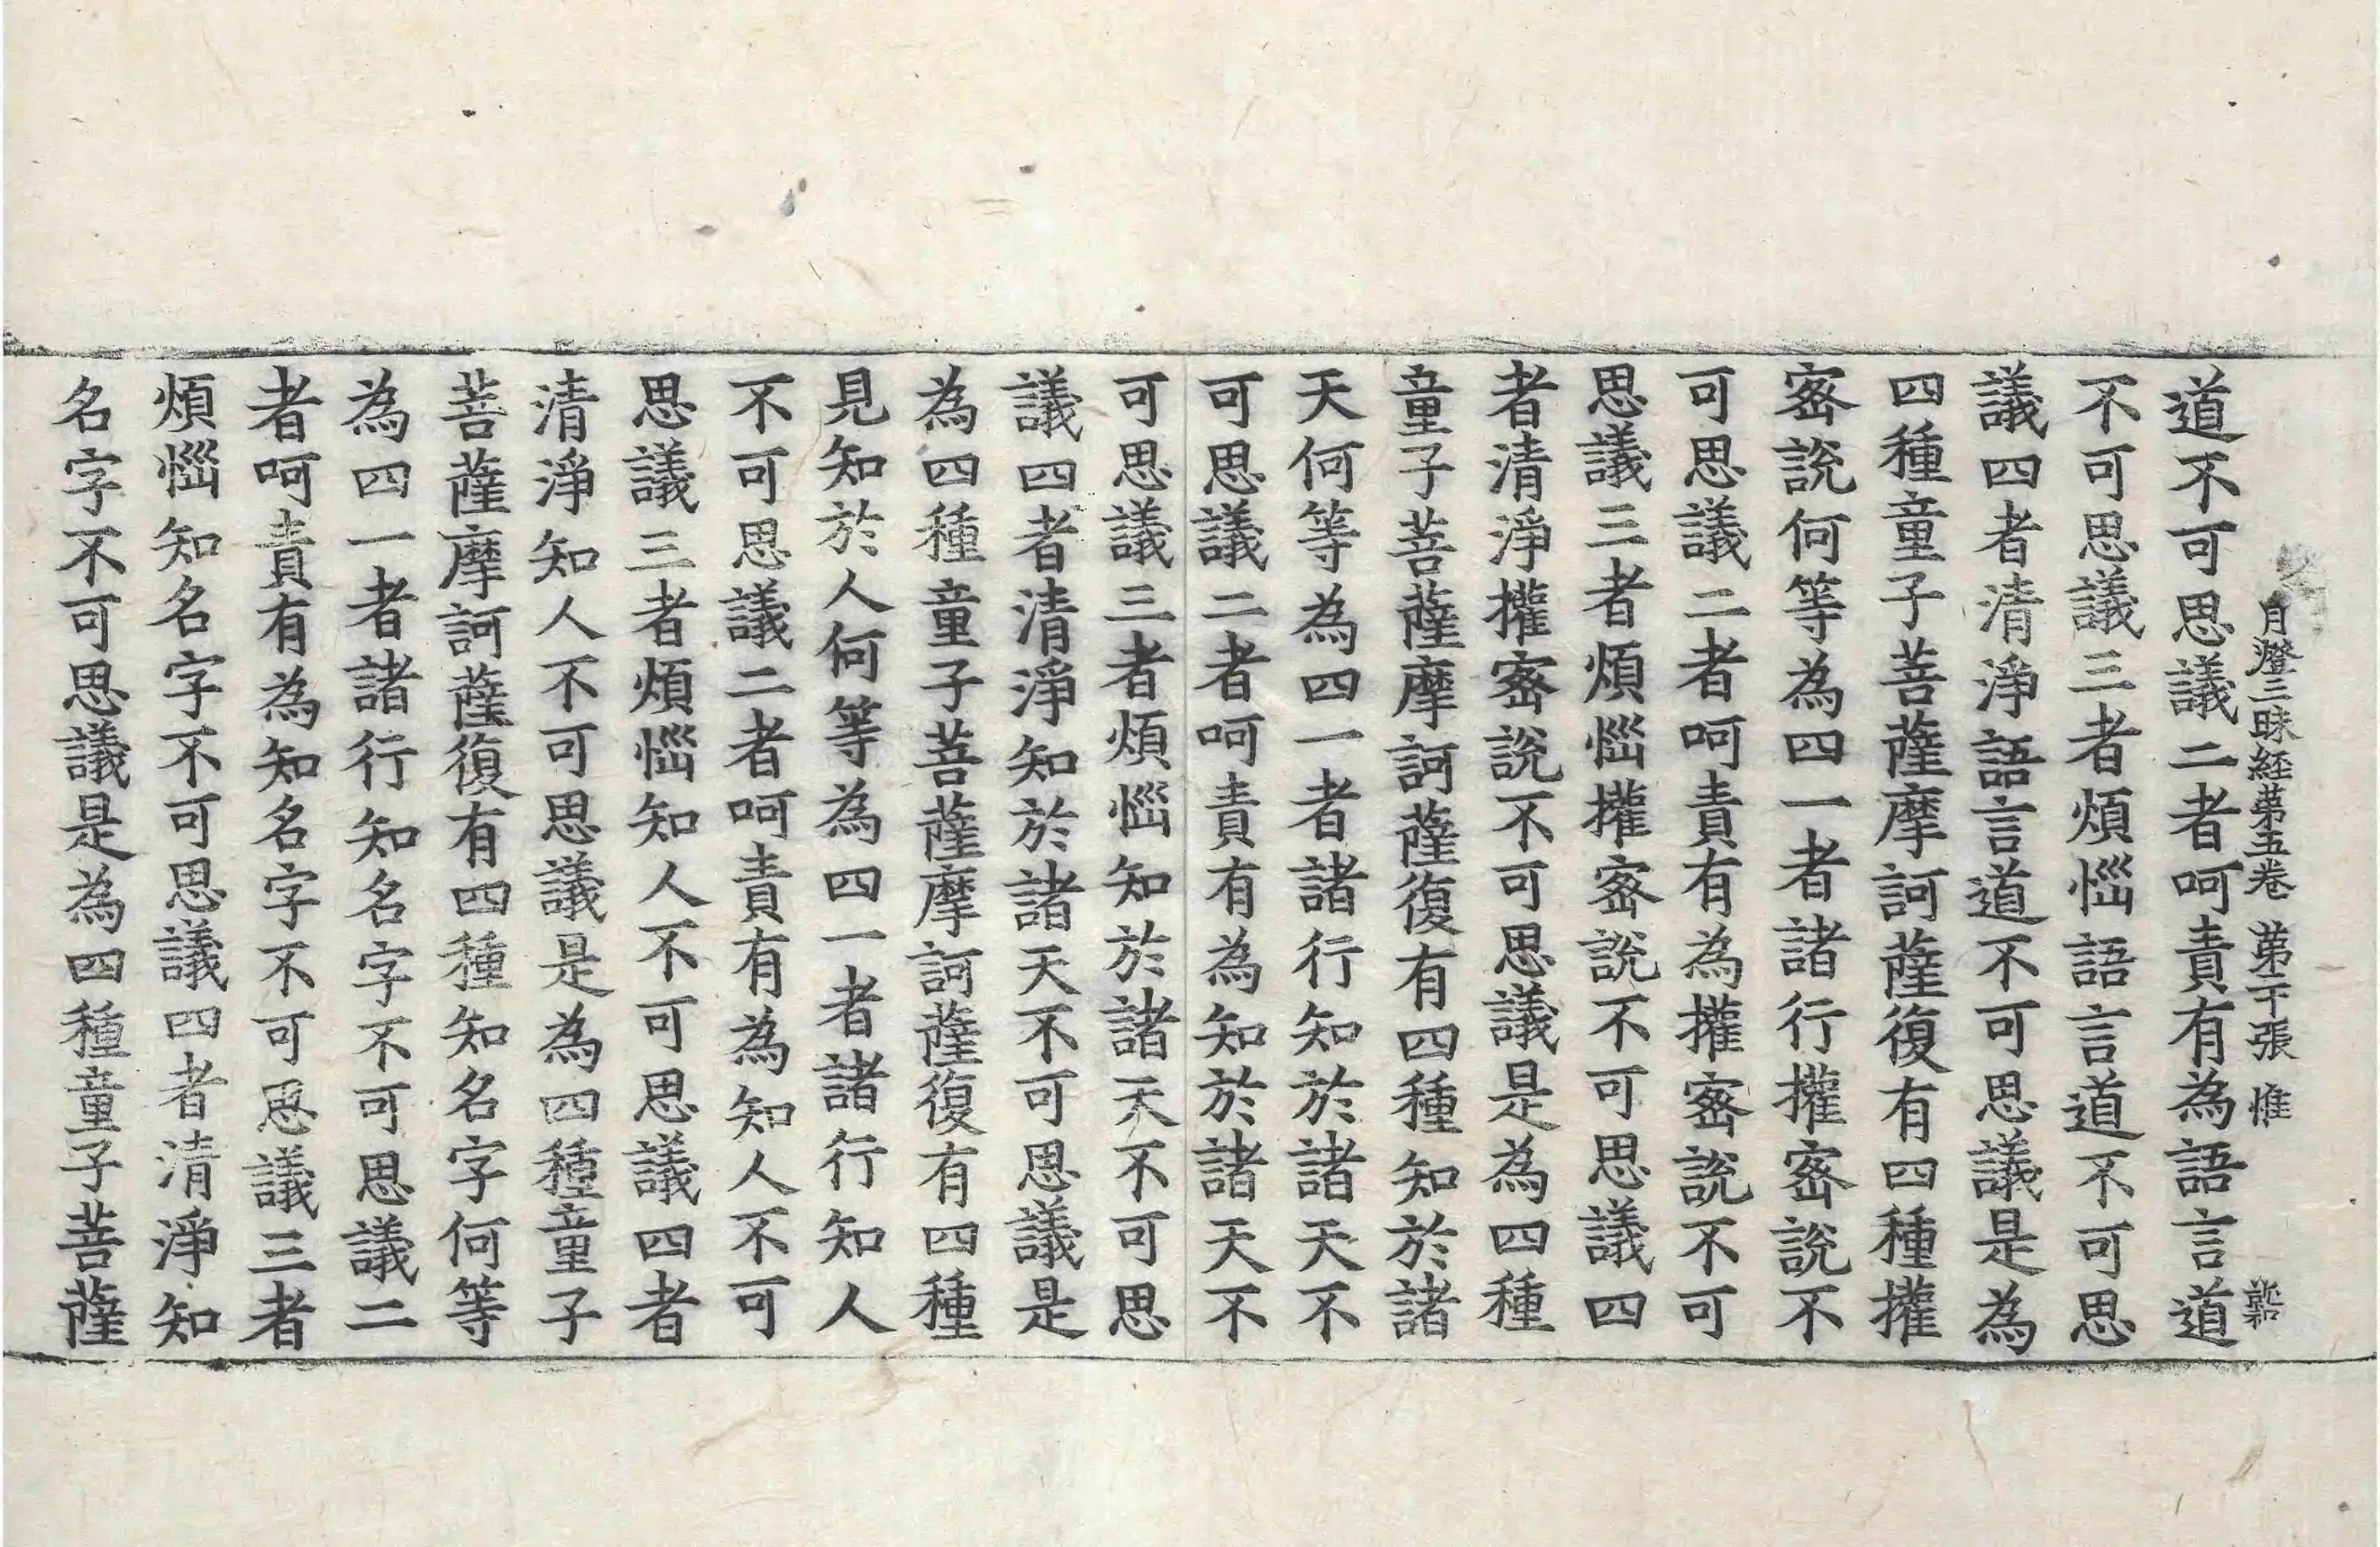 月燈三昧経苐五卷 苐下張 惟
道不可思議二者呵責有為語言道
不可思議三者煩惱語言道不可思
議四者清淨語言道不可思議是為
四種童子菩薩摩訶薩復有四種權
密說何等為四一者諸行權密說不
可思議二者呵責有為權密說不可
思議三者煩惱權密說不可思議四
者清淨權密說不可思議是為四種
童子菩薩摩訶薩復有四種知於諸
天何等為四一者諸行知於諸天不
可思議二者呵責有為知於諸天不
可思議三者煩惱知於諸天不可思
議四者清淨知於諸天不可思議是
為四種童子菩薩摩訶薩復有四種
見知於人何等為四一者諸行知人
不可思議二者呵責有為知人不可
思議三者煩惱知人不可思議四者
清淨知人不可思議是為四種童子
菩薩摩訶薩復有四種知名字何等
為四一者諸行知名字不可思議二
者呵責有為知名字不可思議三者
煩惱知名字不可思議四者清淨知
名字不可思議是為四種童子菩薩